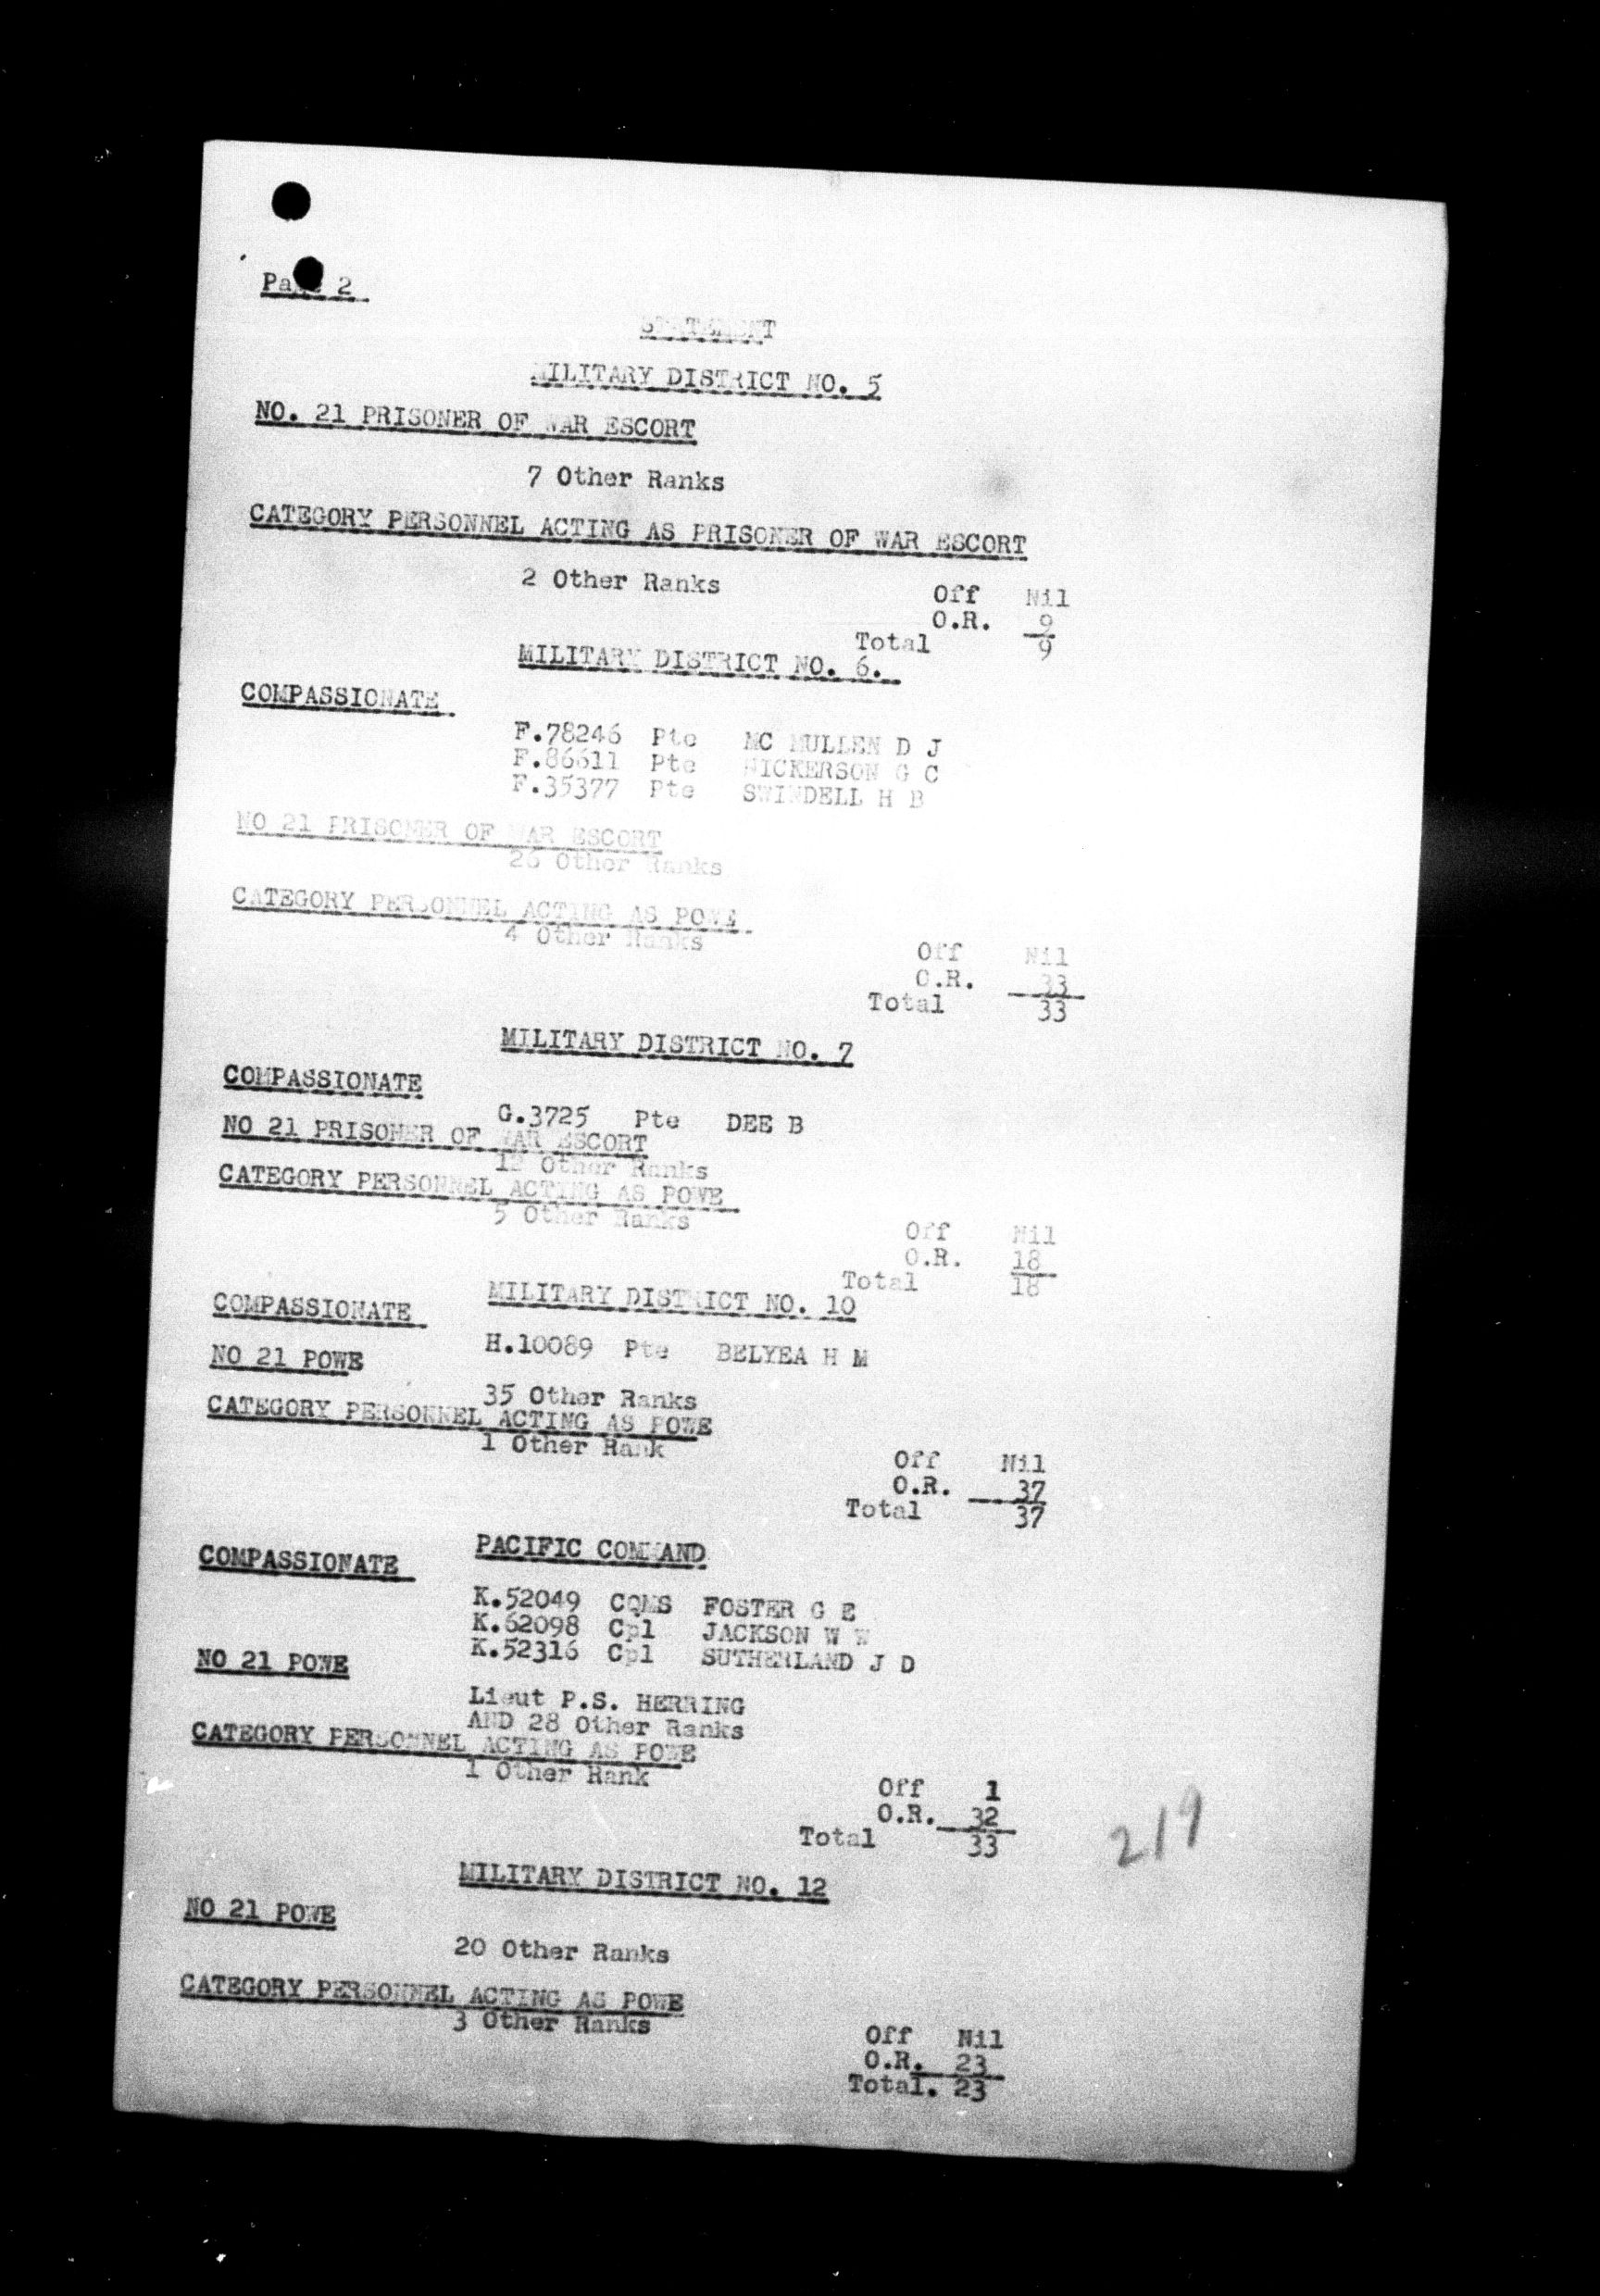 Page 2
STATEMENT
MILITARY DISTRICT NO. 5
NO. 21 PRISONER OF WAR ESCORT
7 Other Ranks
CATEGORY PERSONNEL ACTING AS PRISONER OF WAR ESCORT
2 Other Ranks
Off Nil
O.R. 9
Total 9
MILITARY DISTRICT NO. 6.
COMPASSIONATE
F.78246 Pte MC MULLEN D J
F.86611 Pte NICKERSON G C
F.35377 Pte SWINDELL H B
NO 21 PRISONER OF WAR ESCORT
26 Other Ranks
CATEGORY PERSONNEL ACTING AS POWE
4 Other Ranks
Off Nil
O.R. 33
Total 33
MILITARY DISTRICT NO. 7
COMPASSIONATE
G.3725 Pte DEE B
NO 21 PRISONER OF WAR ESCORT
12 Other Ranks
CATEGORY PERSONNEL ACTING AS POWE
5 Other Ranks
Off Nil
O.R. 18
Total 18
MILITARY DISTRICT NO. 10
COMPASSIONATE
H.10089 Pte BELYEA H M
NO 21 POWE
35 Other Ranks
CATEGORY PERSONNEL ACTING AS POWE
1 Other Rank
Off Nil
O.R. 37
Total 37
PACIFIC COMMAND
COMPASSIONATE
K.52049 CQMS FOSTER G E
K.62098 Cpl JACKSON W W
K.52316 Cpl SUTHERLAND J D
NO 21 POWE
Lieut P.S. HERRING
AND 28 Other Ranks
CATEGORY PERSONNEL ACTING AS POWE
1 Other Rank
Off 1
O.R. 32
Total 33
219
MILITARY DISTRICT NO. 12
NO 21 POWE
20 Other Ranks
CATEGORY PERSONNEL ACTING AS POWE
3 Other Ranks
Off Nil
O.R. 23
Total. 23